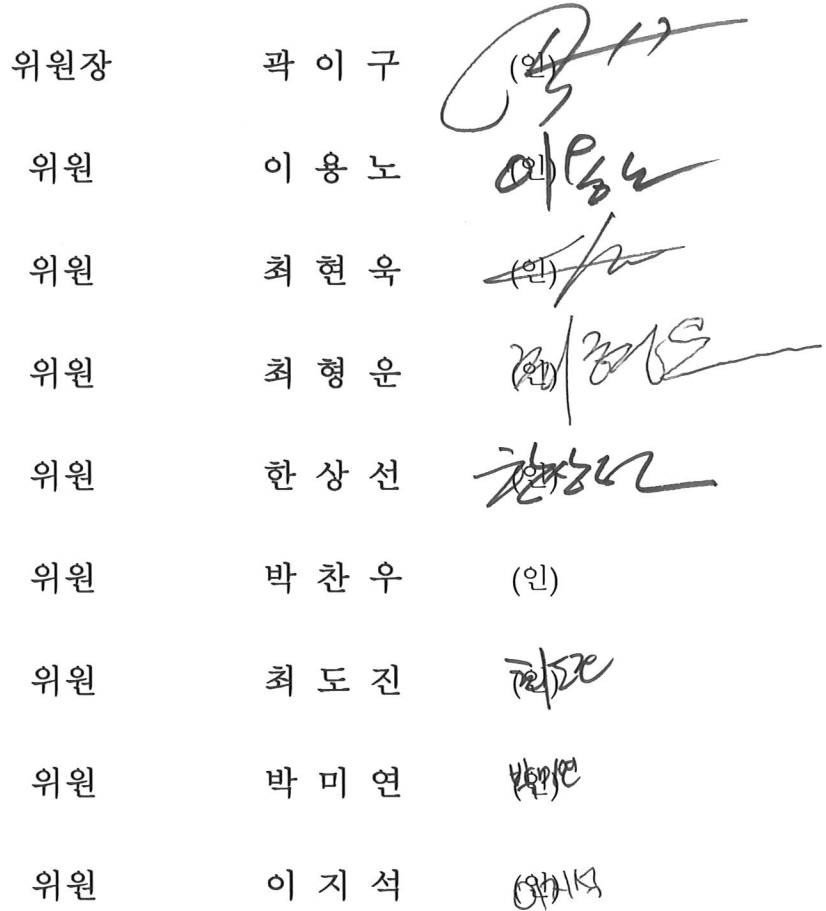 위원장 곽 이 구 (인)
위원 이 용 노 (인) 이용노
위원 최 현 욱 (인)
위원 최 형 운 (인)
위원 한 상 선 (인) 한상선
위원 박 찬 우 (인)
위원 최 도 진 (인)
위원 박 미 연 (인) 박미연
위원 이 지 석 (인) 이지석